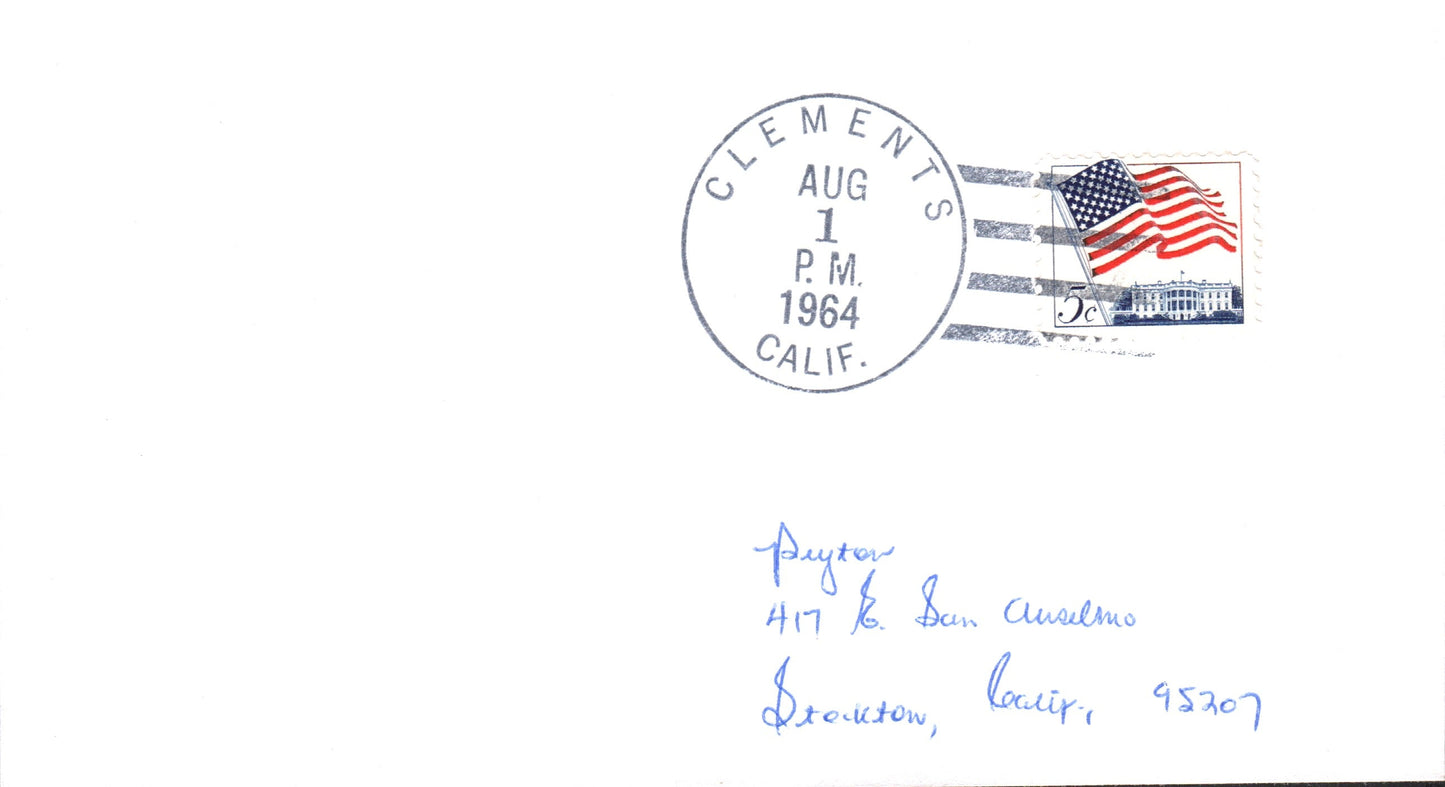 CLEMENTS
AUG
1
P.M.
1964
CALIF.
5c
Peyton
417 E. San Anselmo
Stockton, Calif., 95207